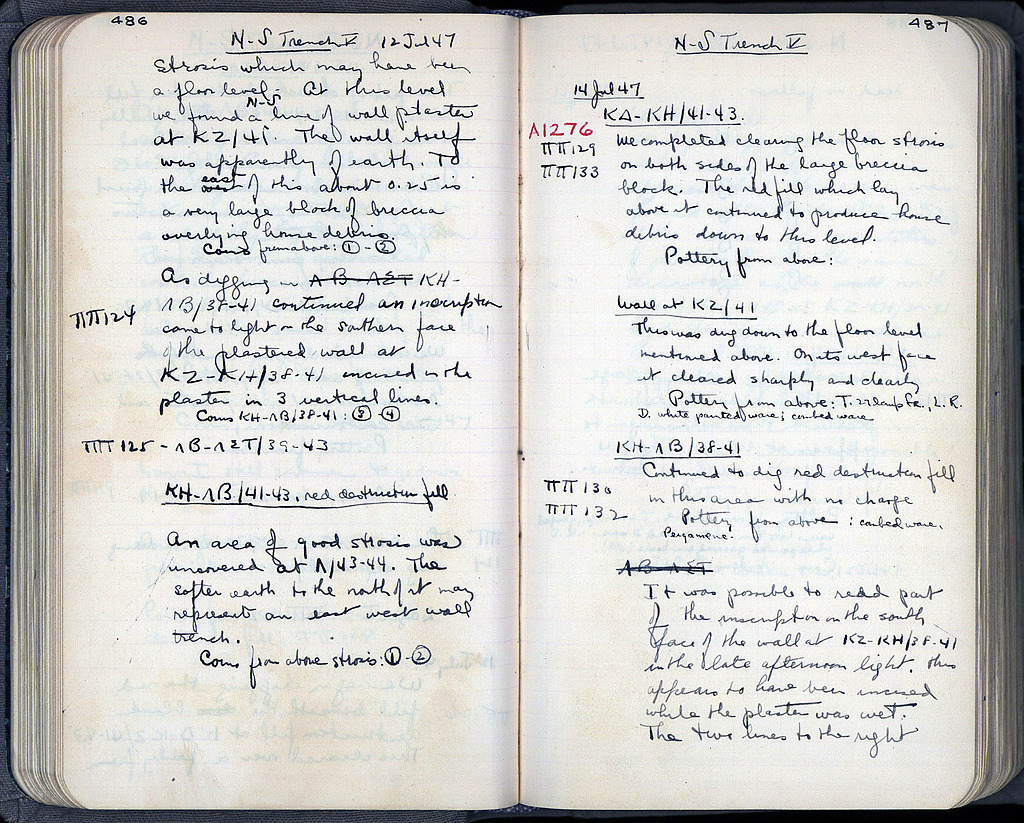 486
N-S Trench V 12 Jul 47
strosis which may have been
a floor level. At this level
we found a N-S line of wall plaster
at ΚΖ/41. The wall itself
was apparently of earth. To
the east of this about 0.25 is
a very large block of breccia
overlying house debris.
Coins from above: ① - ②
As digging in ΛΒ-ΛΣΤ ΚΗ-
ΛΒ/38-41 continued an inscription
ΠΠ124
came to light on the southern face
of the plastered wall at
ΚΖ-ΚΗ/38-41 incised in the
plaster in 3 vertical lines.
Coins ΚΗ-ΛΒ/38-41: ③ - ④
ΠΠ125 - ΛΒ-ΛΣΤ/39-43
ΚΗ-ΛΒ/41-43, red destruction fill
An area of good strosis was
uncovered at Λ/43-44. The
softer earth to the north of it may
represent an east west wall
trench.
Coins from above strosis: ① - ②
487
N-S Trench V
14 Jul 47
ΚΔ-ΚΗ/41-43.
A1276
We completed clearing the floor strosis
ΠΠ129
on both sides of the large breccia
ΠΠ133
block. The red fill which lay
above it continued to produce house
debris down to this level.
Pottery from above:
Wall at ΚΖ/41
This was dug down to the floor level
mentioned above. On its west face
it cleared sharply and clearly
Pottery from above: T. 27 lamp fr., L. R.
D. white painted ware; combed ware
ΚΗ-ΛΒ/38-41
Continued to dig red destruction fill
ΠΠ130
in this area with no change
ΠΠ132
Pottery from above: combed ware,
Pergamene.
ΛΒ-ΛΣΤ
It was possible to read part
of the inscription on the south
face of the wall at ΚΖ-ΚΗ/38-41
in the late afternoon light. This
appears to have been incised
while the plaster was wet.
The two lines to the right